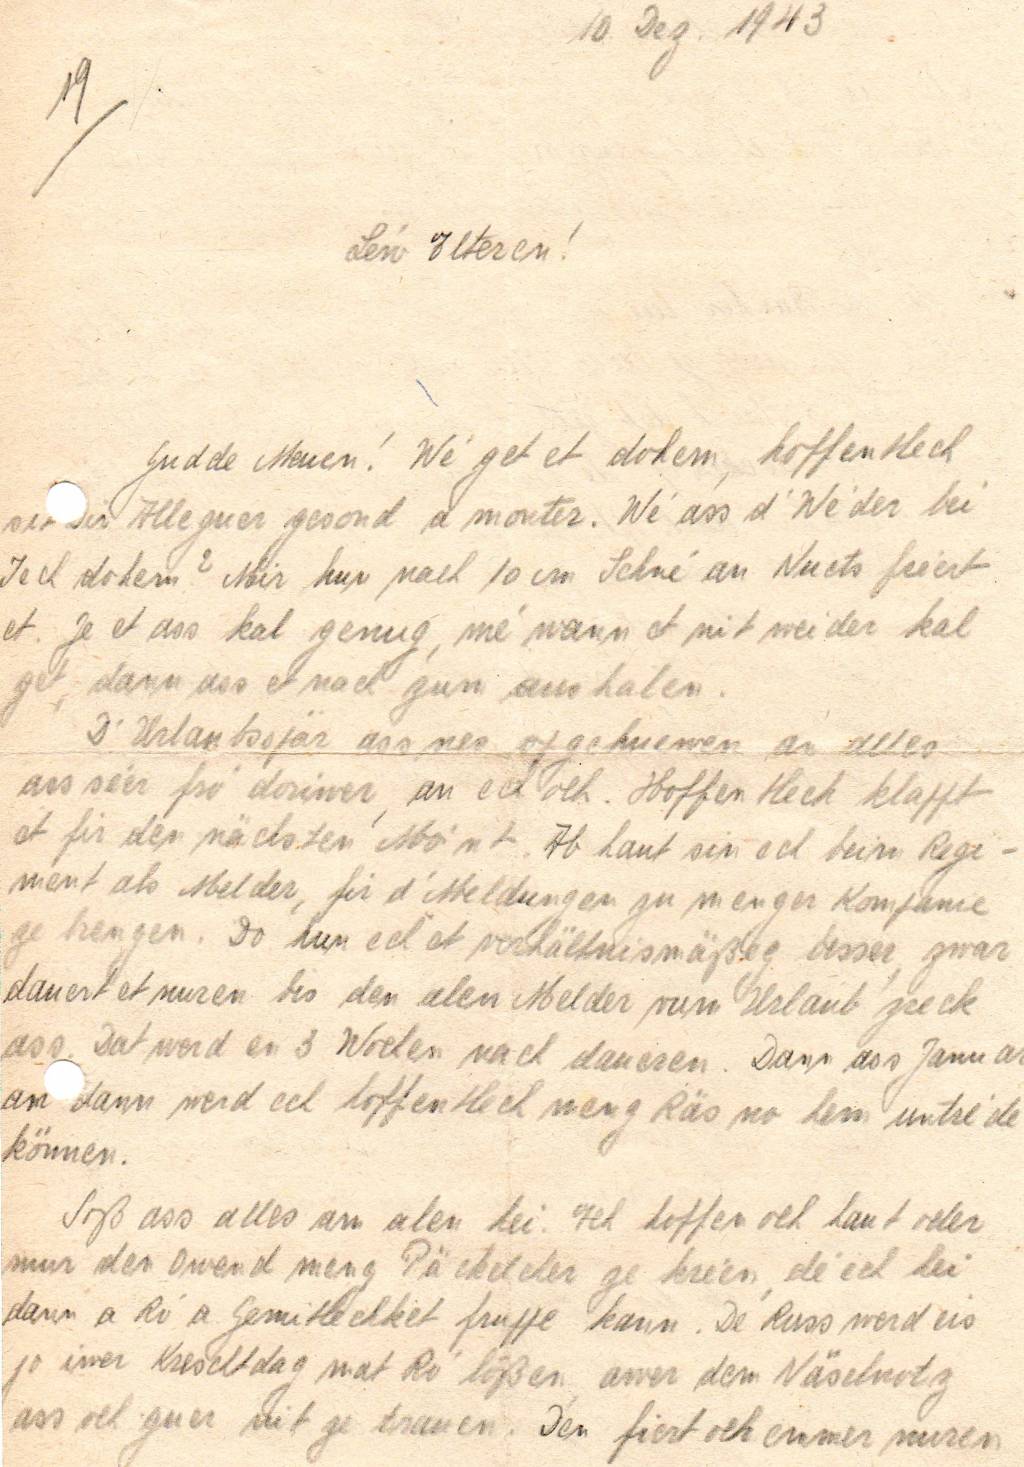 10. Dez. 1943
19
Léiv Elteren!
Gudde Muen! Wé get et dohem, hoffentlech
sit Dir Alleguer gesond a monter. Wé ass d'Wéder bei
Iech dohem? Mir hun nach 10 cm Schné an Nuets freiert
et. Jo et ass kal genug, mé wann et nit weider kal
get, dann ass et nach zum aushalen.
D'Urlaubsspär ass nes opgehuewen an alles
ass séer fró doriwer, an ech och. Hoffentlech klappt
et fir den nächsten Mónt. Ab haut sin ech beim Regi-
ment als Melder, fir d'Meldungen zu menger Kompanie
ze brengen. Do hun ech et verhältnismäßeg besser, zwar
dauert et nuren bis den alen Melder vum Urlaub zreck
ass. Dat werd en 3 Wochen nach daueren. Dann ass Januar
an dann werd ech hoffentlech meng Räs no hem untriede
können.
Soß ass alles am alen hei. Ech hoffen och haut oder
mur den Owend meng Päckelcher ze kréien, dé ech hei
dann a Ró a Gemitlechket fruppe kann. De Russ werd eis
jo iwer Kreschtdag mat Ró lößen, awer dem Näselnotz
ass och guer nit ze trauen. Den fiert och emmer nuren